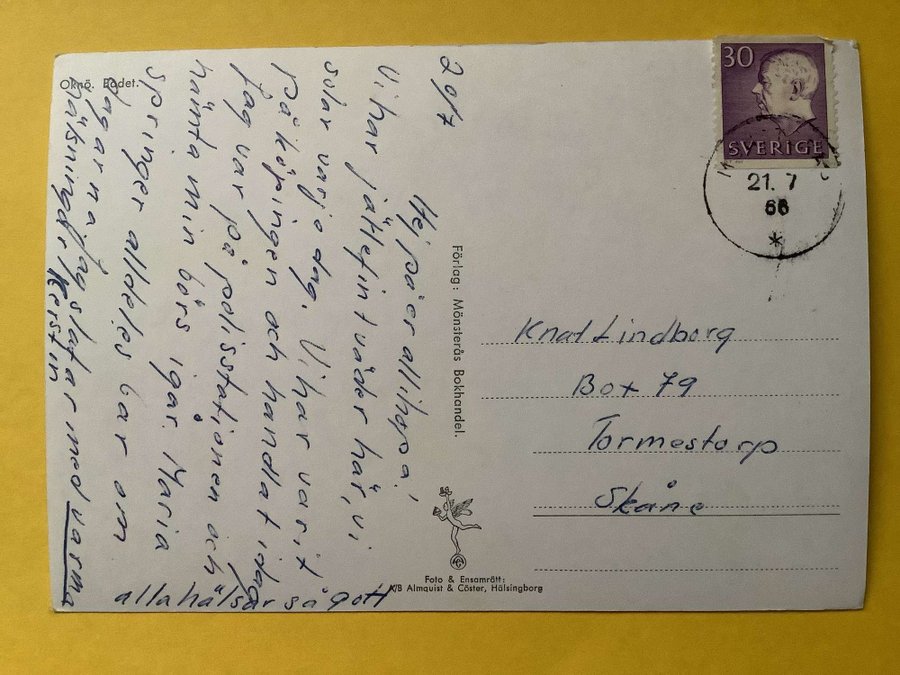 Oknö. Badet.
20/7
Hej på er allihopa!
Vi har jättefint väder här, vi
solar varje dag. Vi har varit
på köpingen och handlat idag
Jag var på polisstationen och
hämta min börs igår. Maria
springer alldeles bar om
dagarna. Jag slutar med varma
hälsningar, Kerstin
alla hälsar så gott
Förlag: Mönsterås Bokhandel.
Foto & Ensamrätt:
A/B Almquist & Cöster, Hälsingborg
30
SVERIGE
21. 7
66
*
Knut Lindborg
Box 79
Tormestorp
Skåne